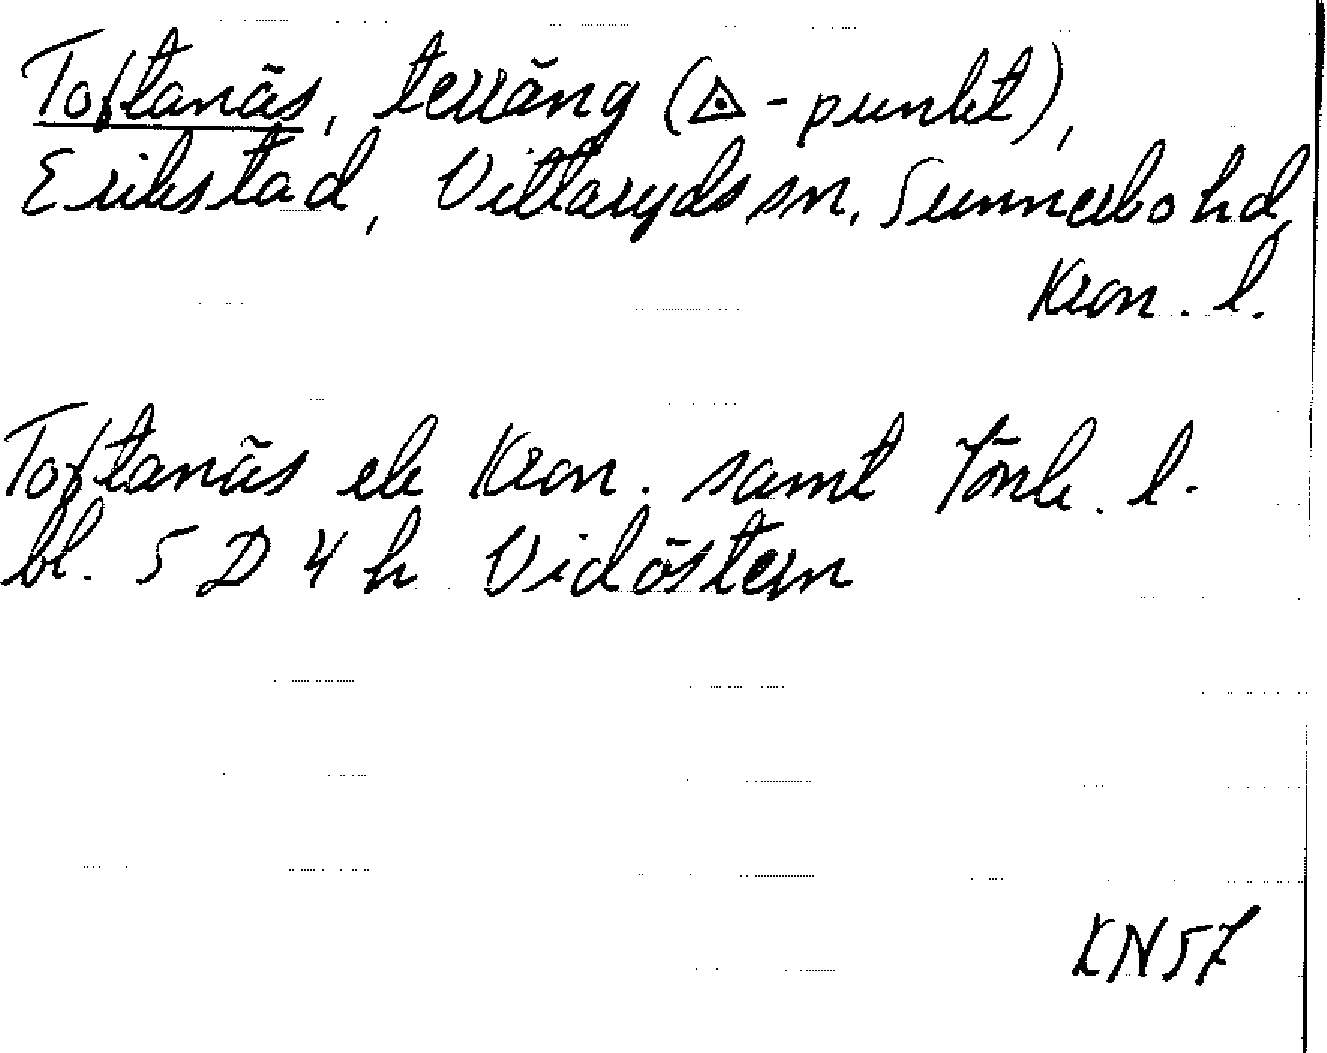 Toftanäs, terräng (◬-punkt),
Erikstad, Vittaryds sn, Sunnerbo hd,
Kron. l.
Toftanäs ek Kron. samt Jönk. l.
bl. 5 D 4 h Vidöstern
KN57